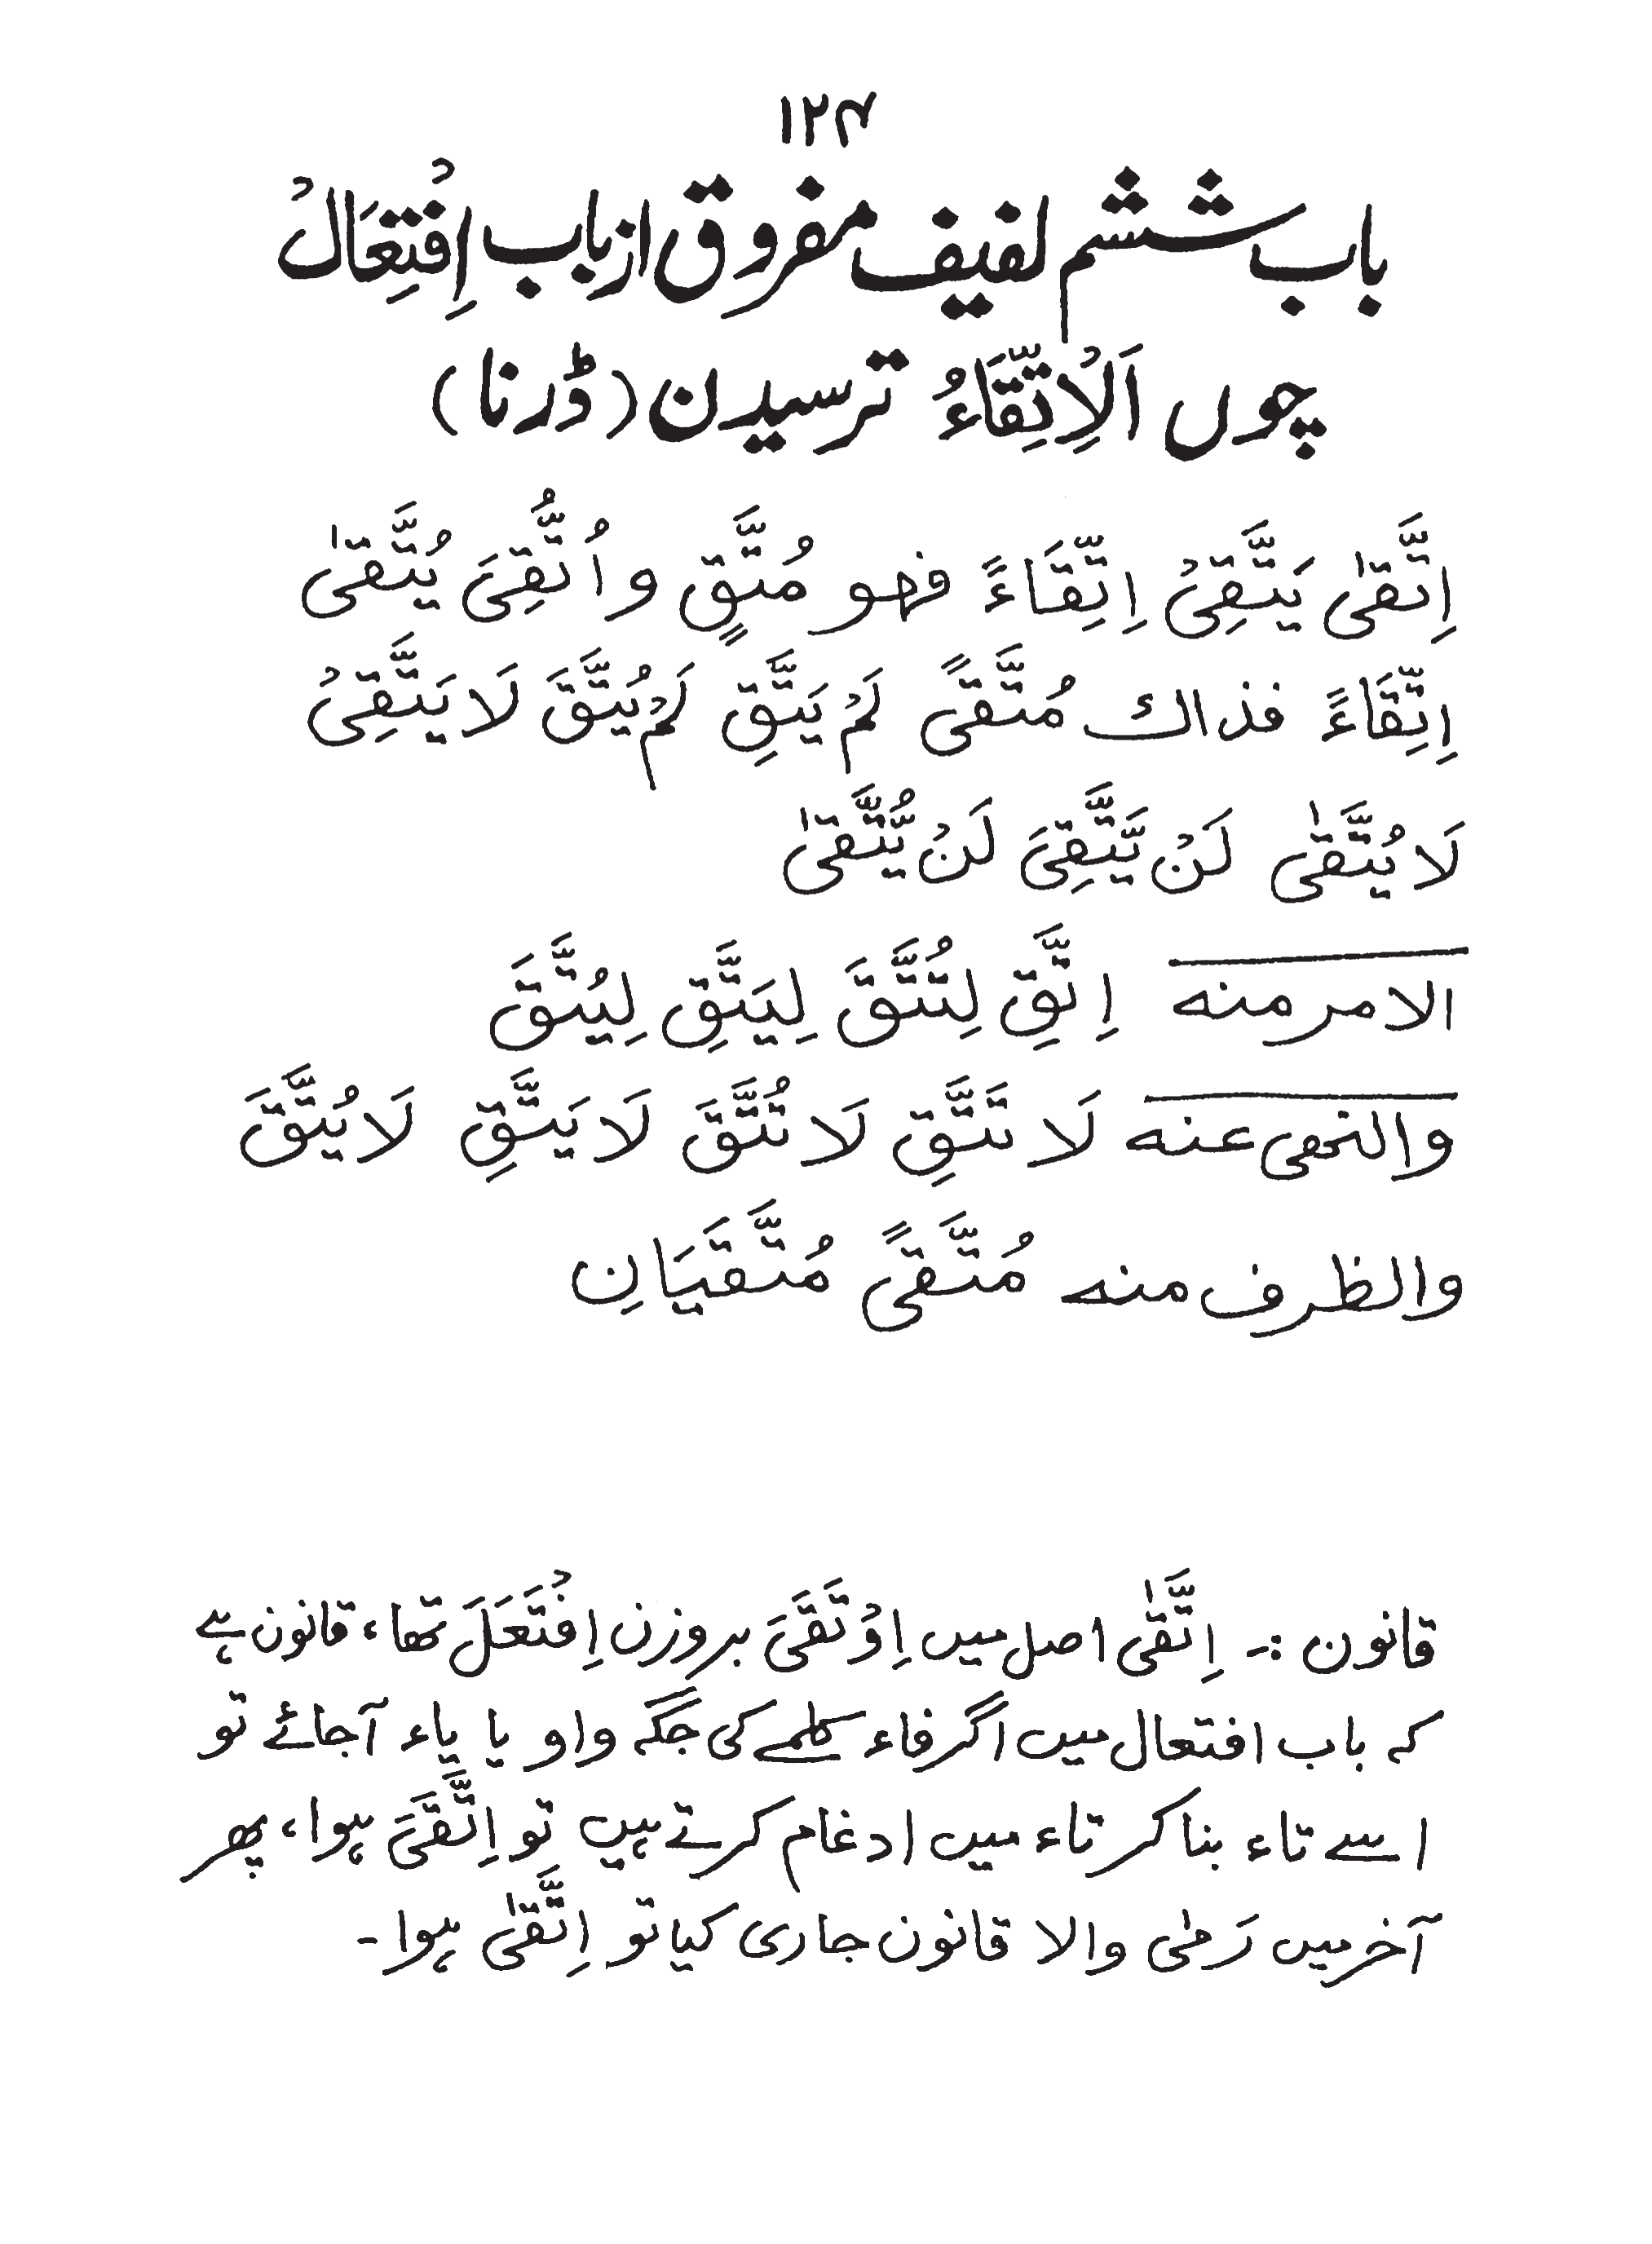 ۱۲۴
باب ششم لفیف مفروق از باب اِفْتِعَالْ
چوں اَلْاِتِّقَاءُ ترسیدن (ڈرنا)
اِتَّقٰی یَتَّقِیْ اِتِّقَاءً فہو مُتَّقٍ و اُتُّقِیَ یُتَّقٰی
اِتِّقَاءً فذاك مُتَّقًی لَمْ یَتَّقِ لَمْ یُتَّقَ لَا یَتَّقِیْ
لَا یُتَّقٰی لَنْ یَّتَّقِیَ لَنْ یُّتَّقٰی
الامر منه اِتَّقِ لِتُتَّقَ لِیَتَّقِ لِیُتَّقَ
والنھی عنه لَا تَتَّقِ لَا تُتَّقَ لَا یَتَّقِ لَا یُتَّقَ
والظرف منه مُتَّقًی مُتَّقَیَانِ
قانون :۔ اِتَّقٰی اصل میں اِوْتَقَیَ بروزن اِفْتَعَلَ تھا، قانون ہے
کہ باب افتعال میں اگر فاء کلمے کی جگہ واو یا یاء آجائے تو
اسے تاء بنا کر تاء میں ادغام کرتے ہیں تو اِتَّقَیَ ہوا، پھر
آخر میں رَمٰی والا قانون جاری کیا تو اِتَّقٰی ہوا۔